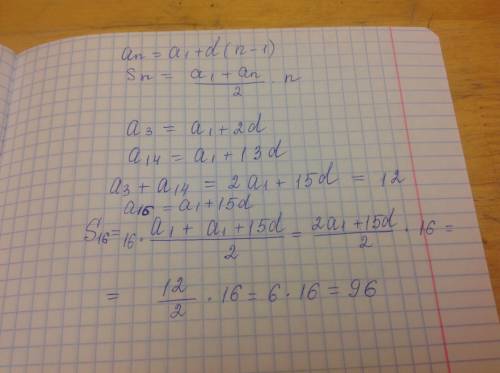 an = a1 + d(n-1)
Sn = (a1 + an)/2 · n
a3 = a1 + 2d
a14 = a1 + 13d
a3 + a14 = 2a1 + 15d = 12
a16 = a1 + 15d
S16 = 16 · (a1 + a1 + 15d)/2 = (2a1 + 15d)/2 · 16 =
= 12/2 · 16 = 6 · 16 = 96